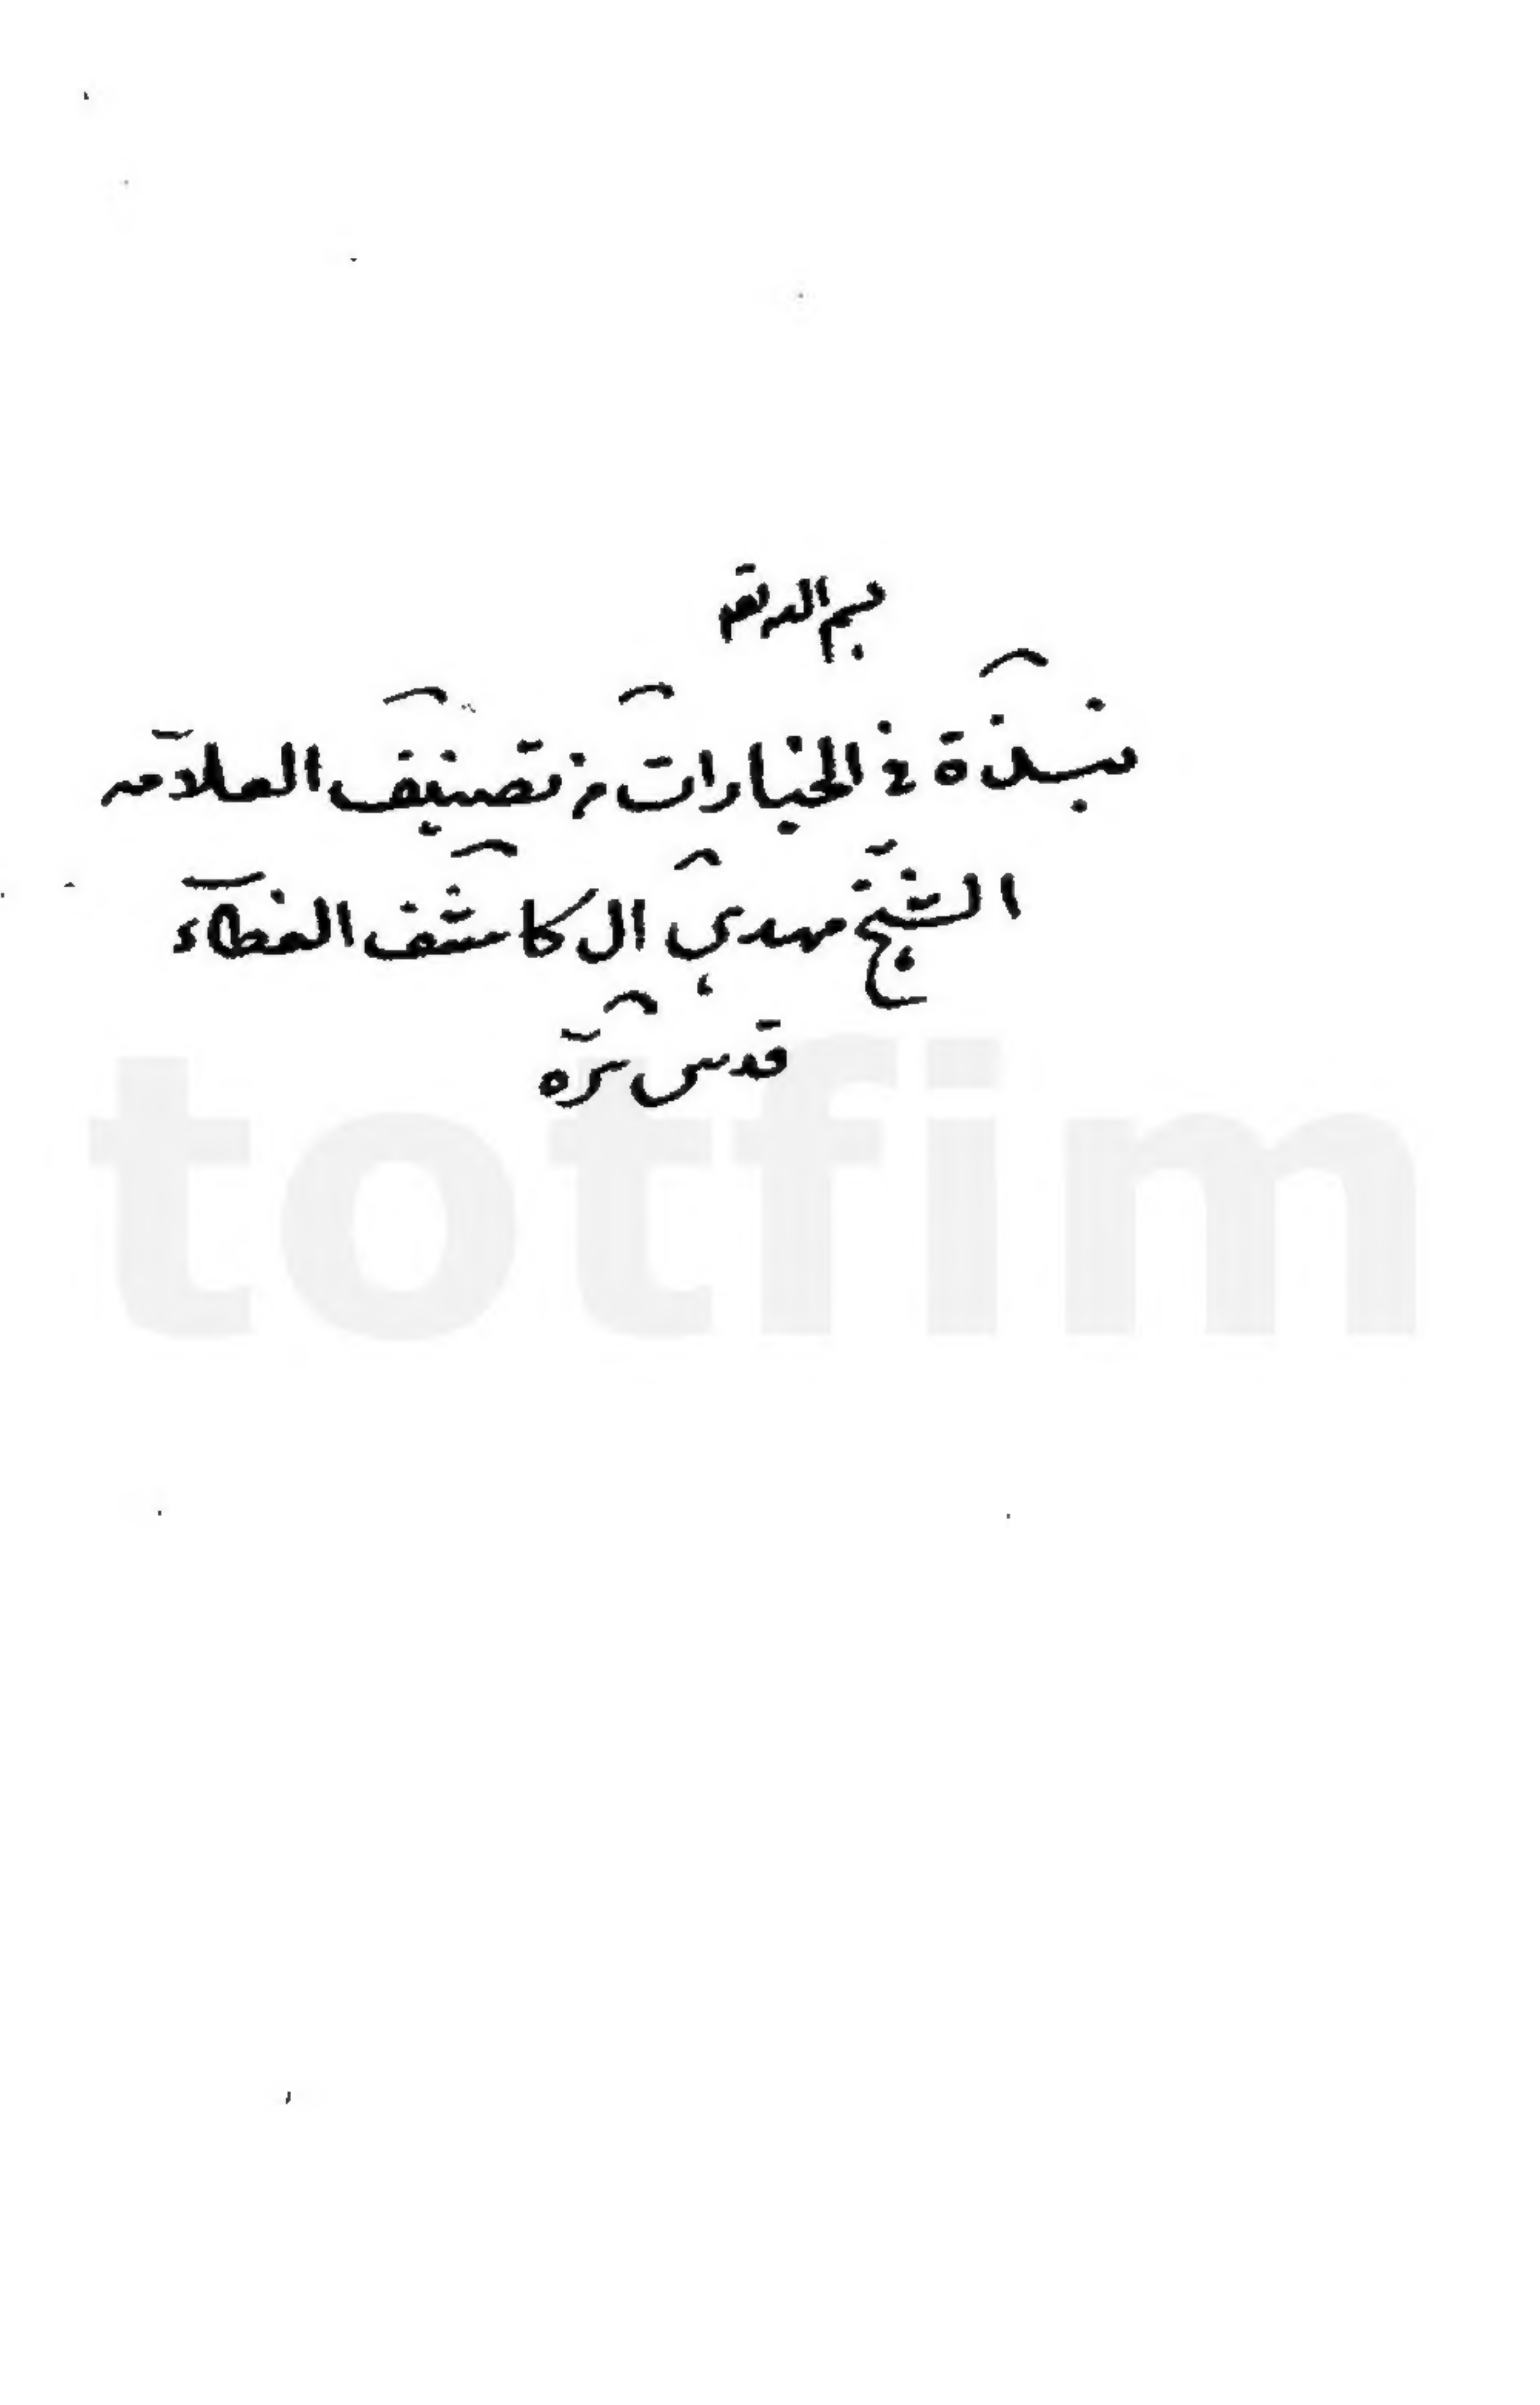 بسم الله تعم
نبذة في الخيارات من تصنيف العلامه
الشيخ مهدي ال كاشف الغطاء
قدس سره
totfim